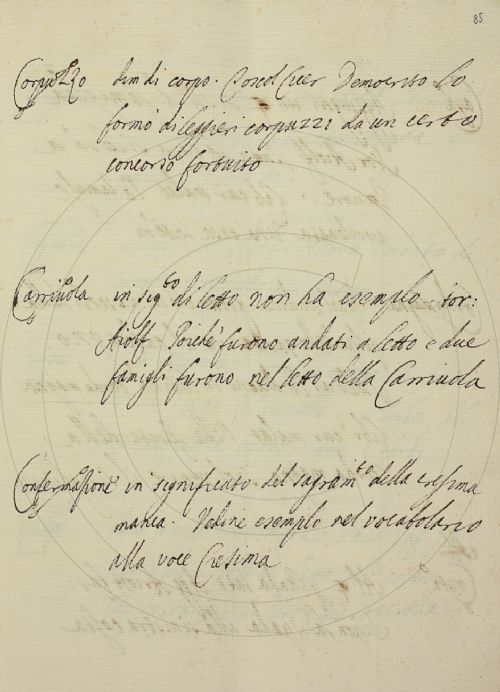 85
Corpuzzo dim di corpo. Coscol Cicer Democrito lo
formò di leggieri corpuzzi da un certo
concorso fortuito
Carriuola in sig.to di letto non ha esemplo. stor:
Aiolf. Poichè furono andati a letto e due
famigli furono nel letto della Carriuola
Confermazione in significato del sagram.to della cresima
manca. Vedine esemplo nel vocabolario
alla voce Cresima